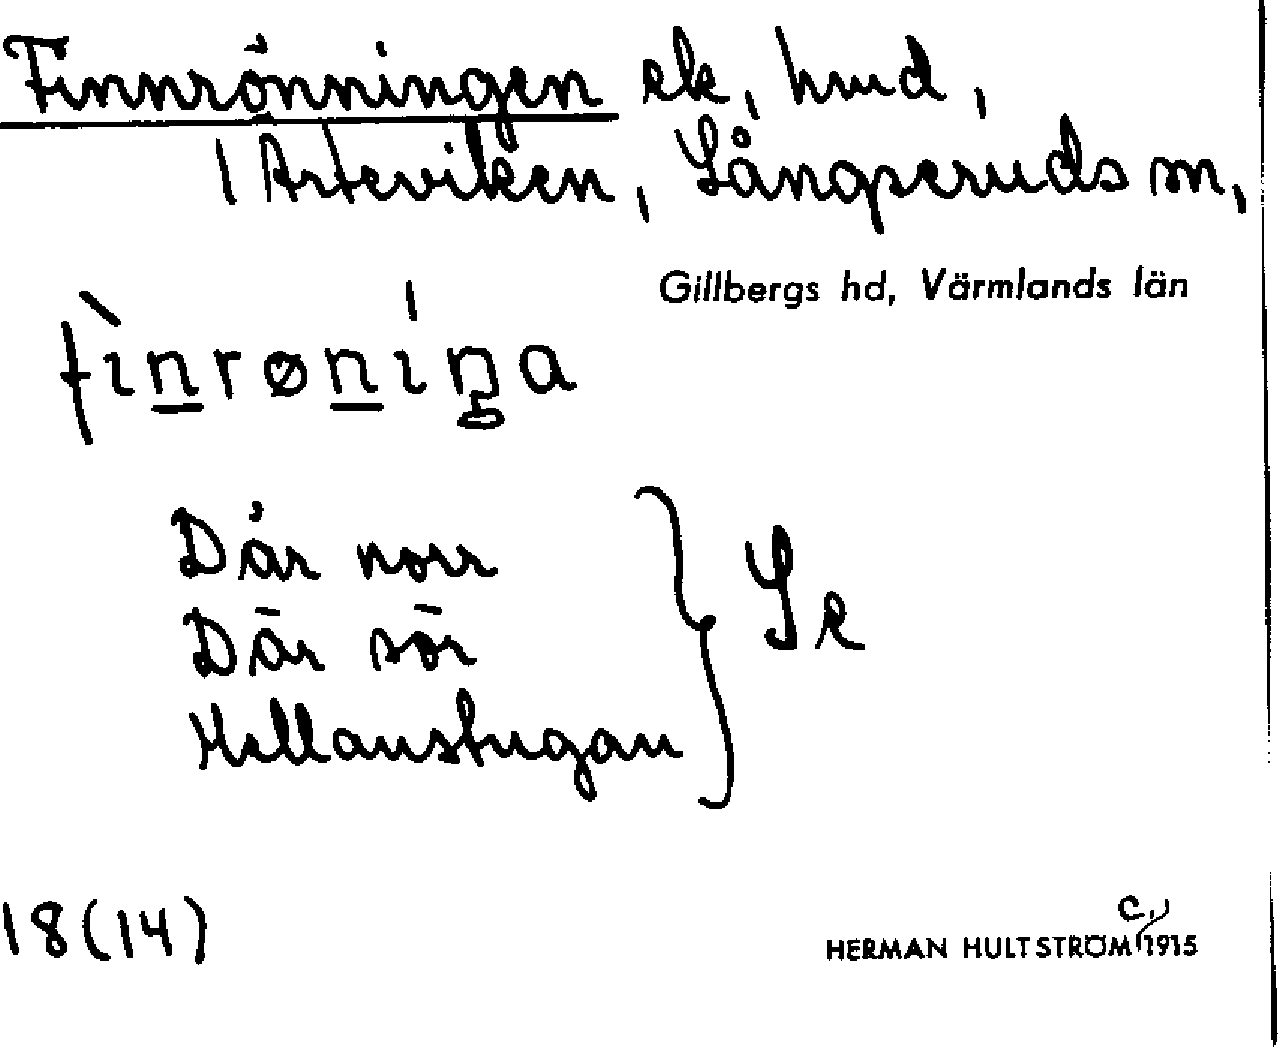 Finnrönningen ek, hmd,
1 Arteviken, Långseruds sn,
Gillbergs hd, Värmlands län
fìn̲røn̲íŋa
Där norr
Där sör
Mellanstugan } Se
18(14)
HERMAN HULTSTRÖM c. 1915